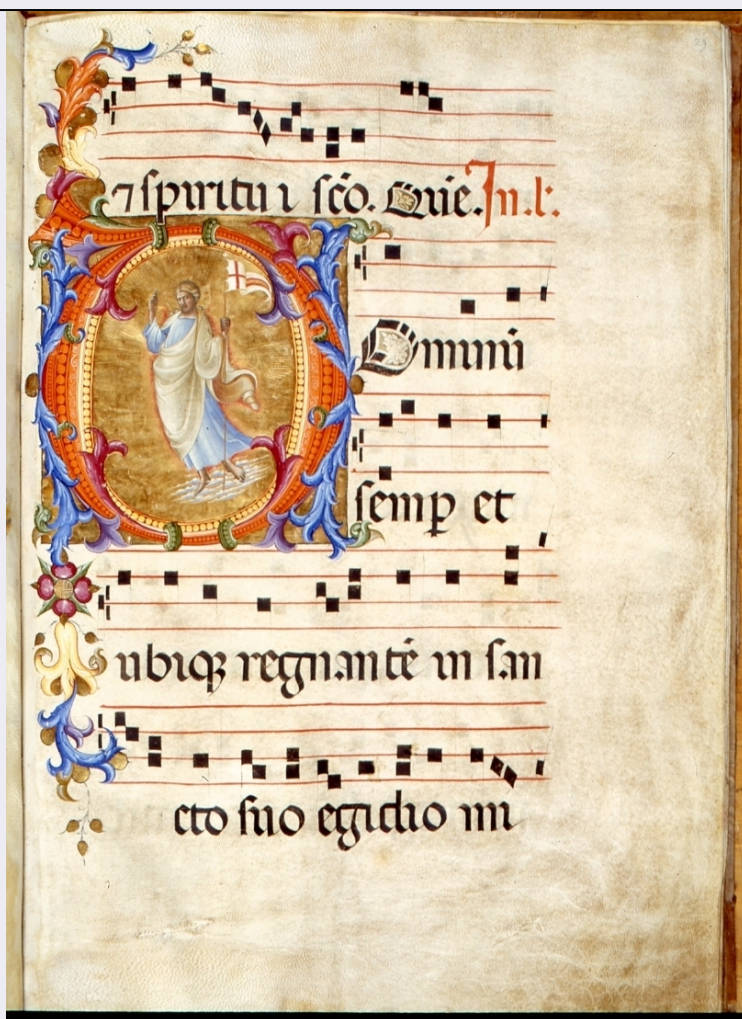 ⁊ spiritu i sc̄o. In.
DOminū
semꝑ et
ubiqꝫ regnantē in san
cto suo egidio mi